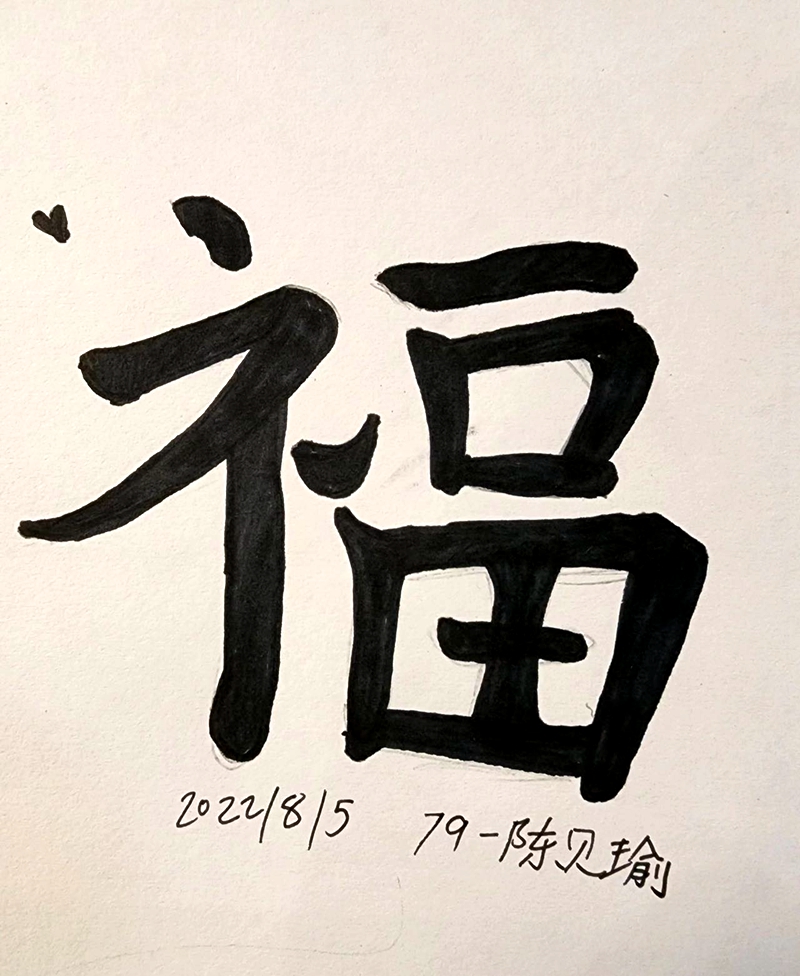 福
2022/8/5 79-陈见瑜